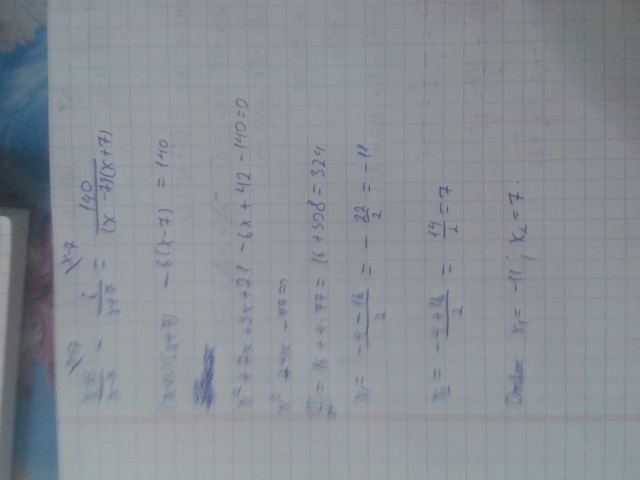 x+7 x-7
x+3/x-7 - 6/x+7 = 140/(x-7)(x+7)
(x+3)(x+7) - 6(x-7) = 140
x² + 7x + 3x + 21 - 6x + 42 - 140 = 0
x² + 4x - 77 = 0
D = 16 + 4·77 = 16 + 308 = 324
x₁ = -4 - 18/2 = - 22/2 = -11
x₂ = -4 + 18/2 = 14/2 = 7
Ответ: x₁ = -11; x₂ = 7.